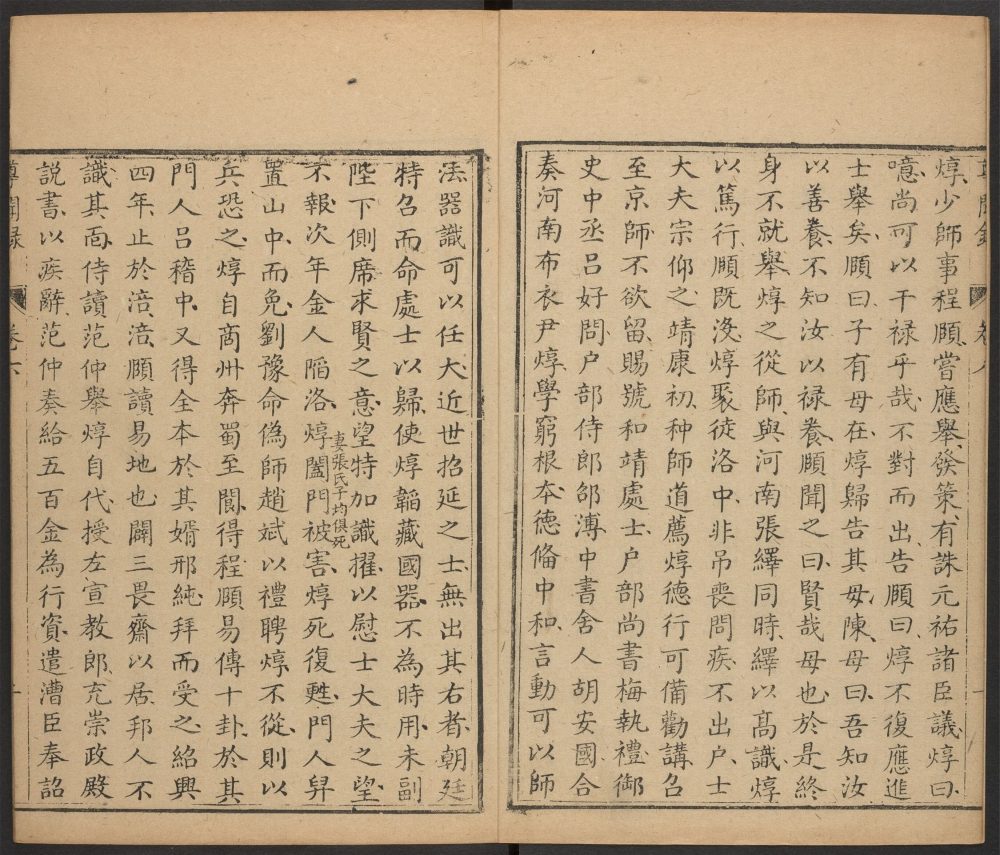 焞少師事程頤嘗應舉發策有誅元祐諸臣議焞曰
噫尚可以干禄乎哉不對而出告頤曰焞不復應進
士舉矣頤曰子有母在焞歸告其母陳母曰吾知汝
以善養不知汝以禄養頤聞之曰賢哉母也於是終
身不就舉焞之從師與河南張繹同時繹以髙識焞
以篤行頤既沒焞聚徒洛中非吊喪問疾不出户士
大夫宗仰之靖康初种師道薦焞德行可備勸講召
至京師不欲留賜號和靖處士户部尚書梅執禮御
史中丞吕好問户部侍郎邵溥中書舍人胡安國合
奏河南布衣尹焞學窮根本德俻中和言動可以師
法器識可以任大近世招延之士無出其右者朝廷
特召而命處士以歸使焞韜藏國器不為時用未副
陛下側席求賢之意望特加識擢以慰士大夫之望
不報次年金人䧟洛焞闔門被害妻張氏子均俱死焞死復甦門人舁
置山中而免劉豫命偽師趙斌以禮聘焞不從則以
兵恐之焞自商州奔蜀至閬得程頤易傳十卦於其
門人吕稽中又得全本於其婿邢純拜而受之紹興
四年止於涪涪頤讀易地也闢三畏齋以居邦人不
識其面侍讀范仲舉焞自代授左宣教郎充崇政殿
説書以疾辭范仲奏給五百金為行資遣漕臣奉詔